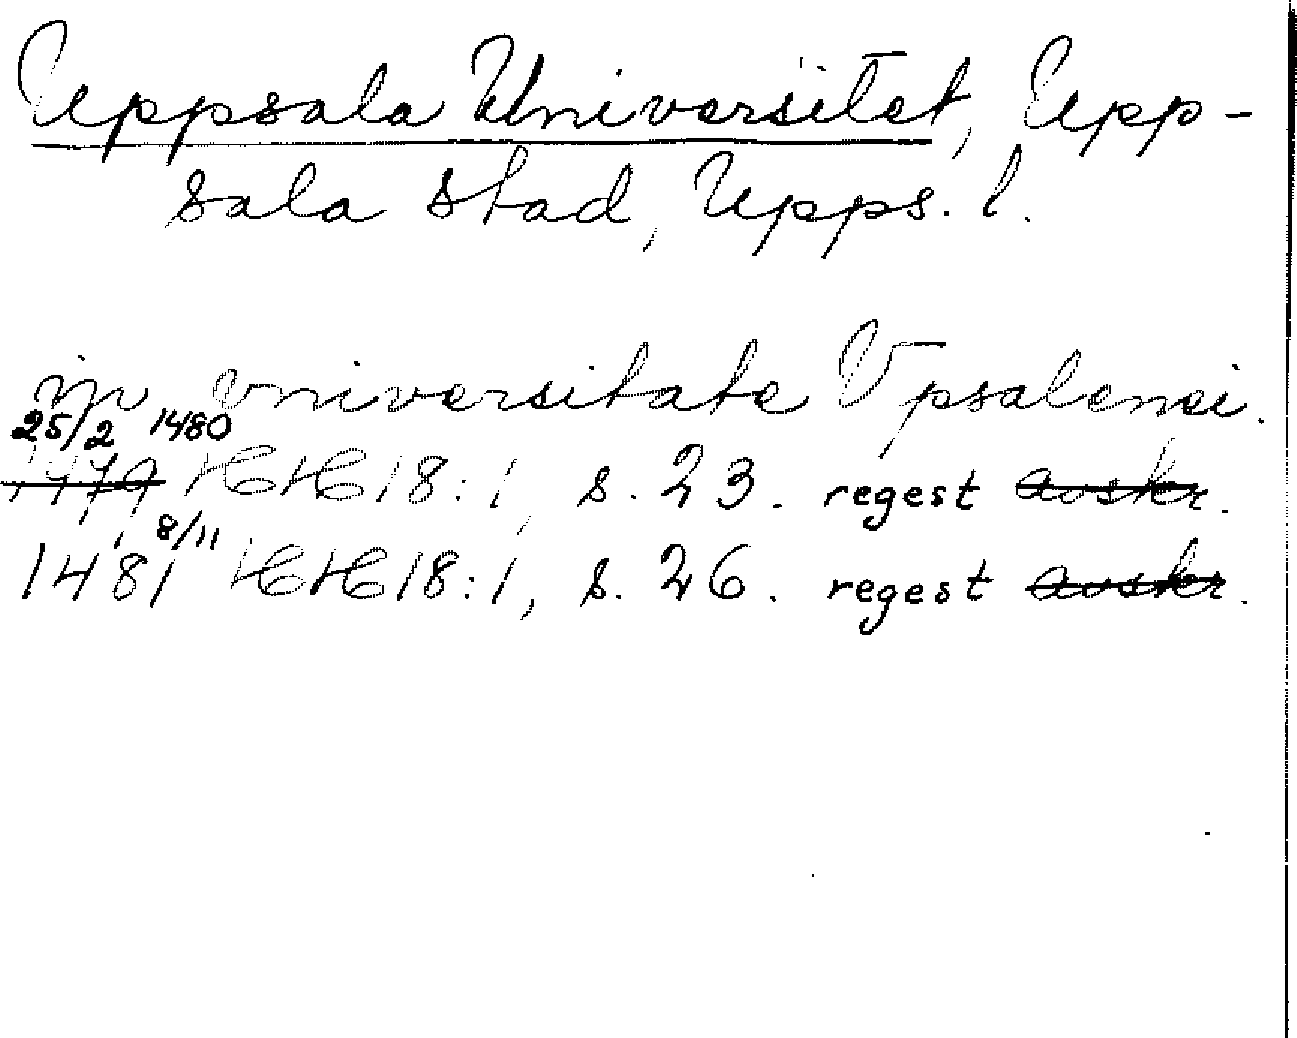 Uppsala Universitet, Upp-
sala stad, Upps. l.
in vniversitate Vpsalensi.
25/2 1480
1479 HH 18:1, s. 23. regest avskr.
1481 8/11 HH 18:1, s. 26. regest avskr.